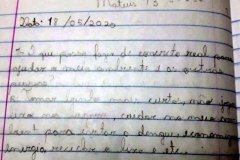 Mateus
Dat: 18/05/2020
1-O que posso fazer de concreto real para
ajudar o meio ambiente e as outras
pessoas?
R: Tomar banho mais curto, não jogar
lixo no, cuidar do meu am
para evitar a dengue, economizar
energia, reciclar o lixo e etc.